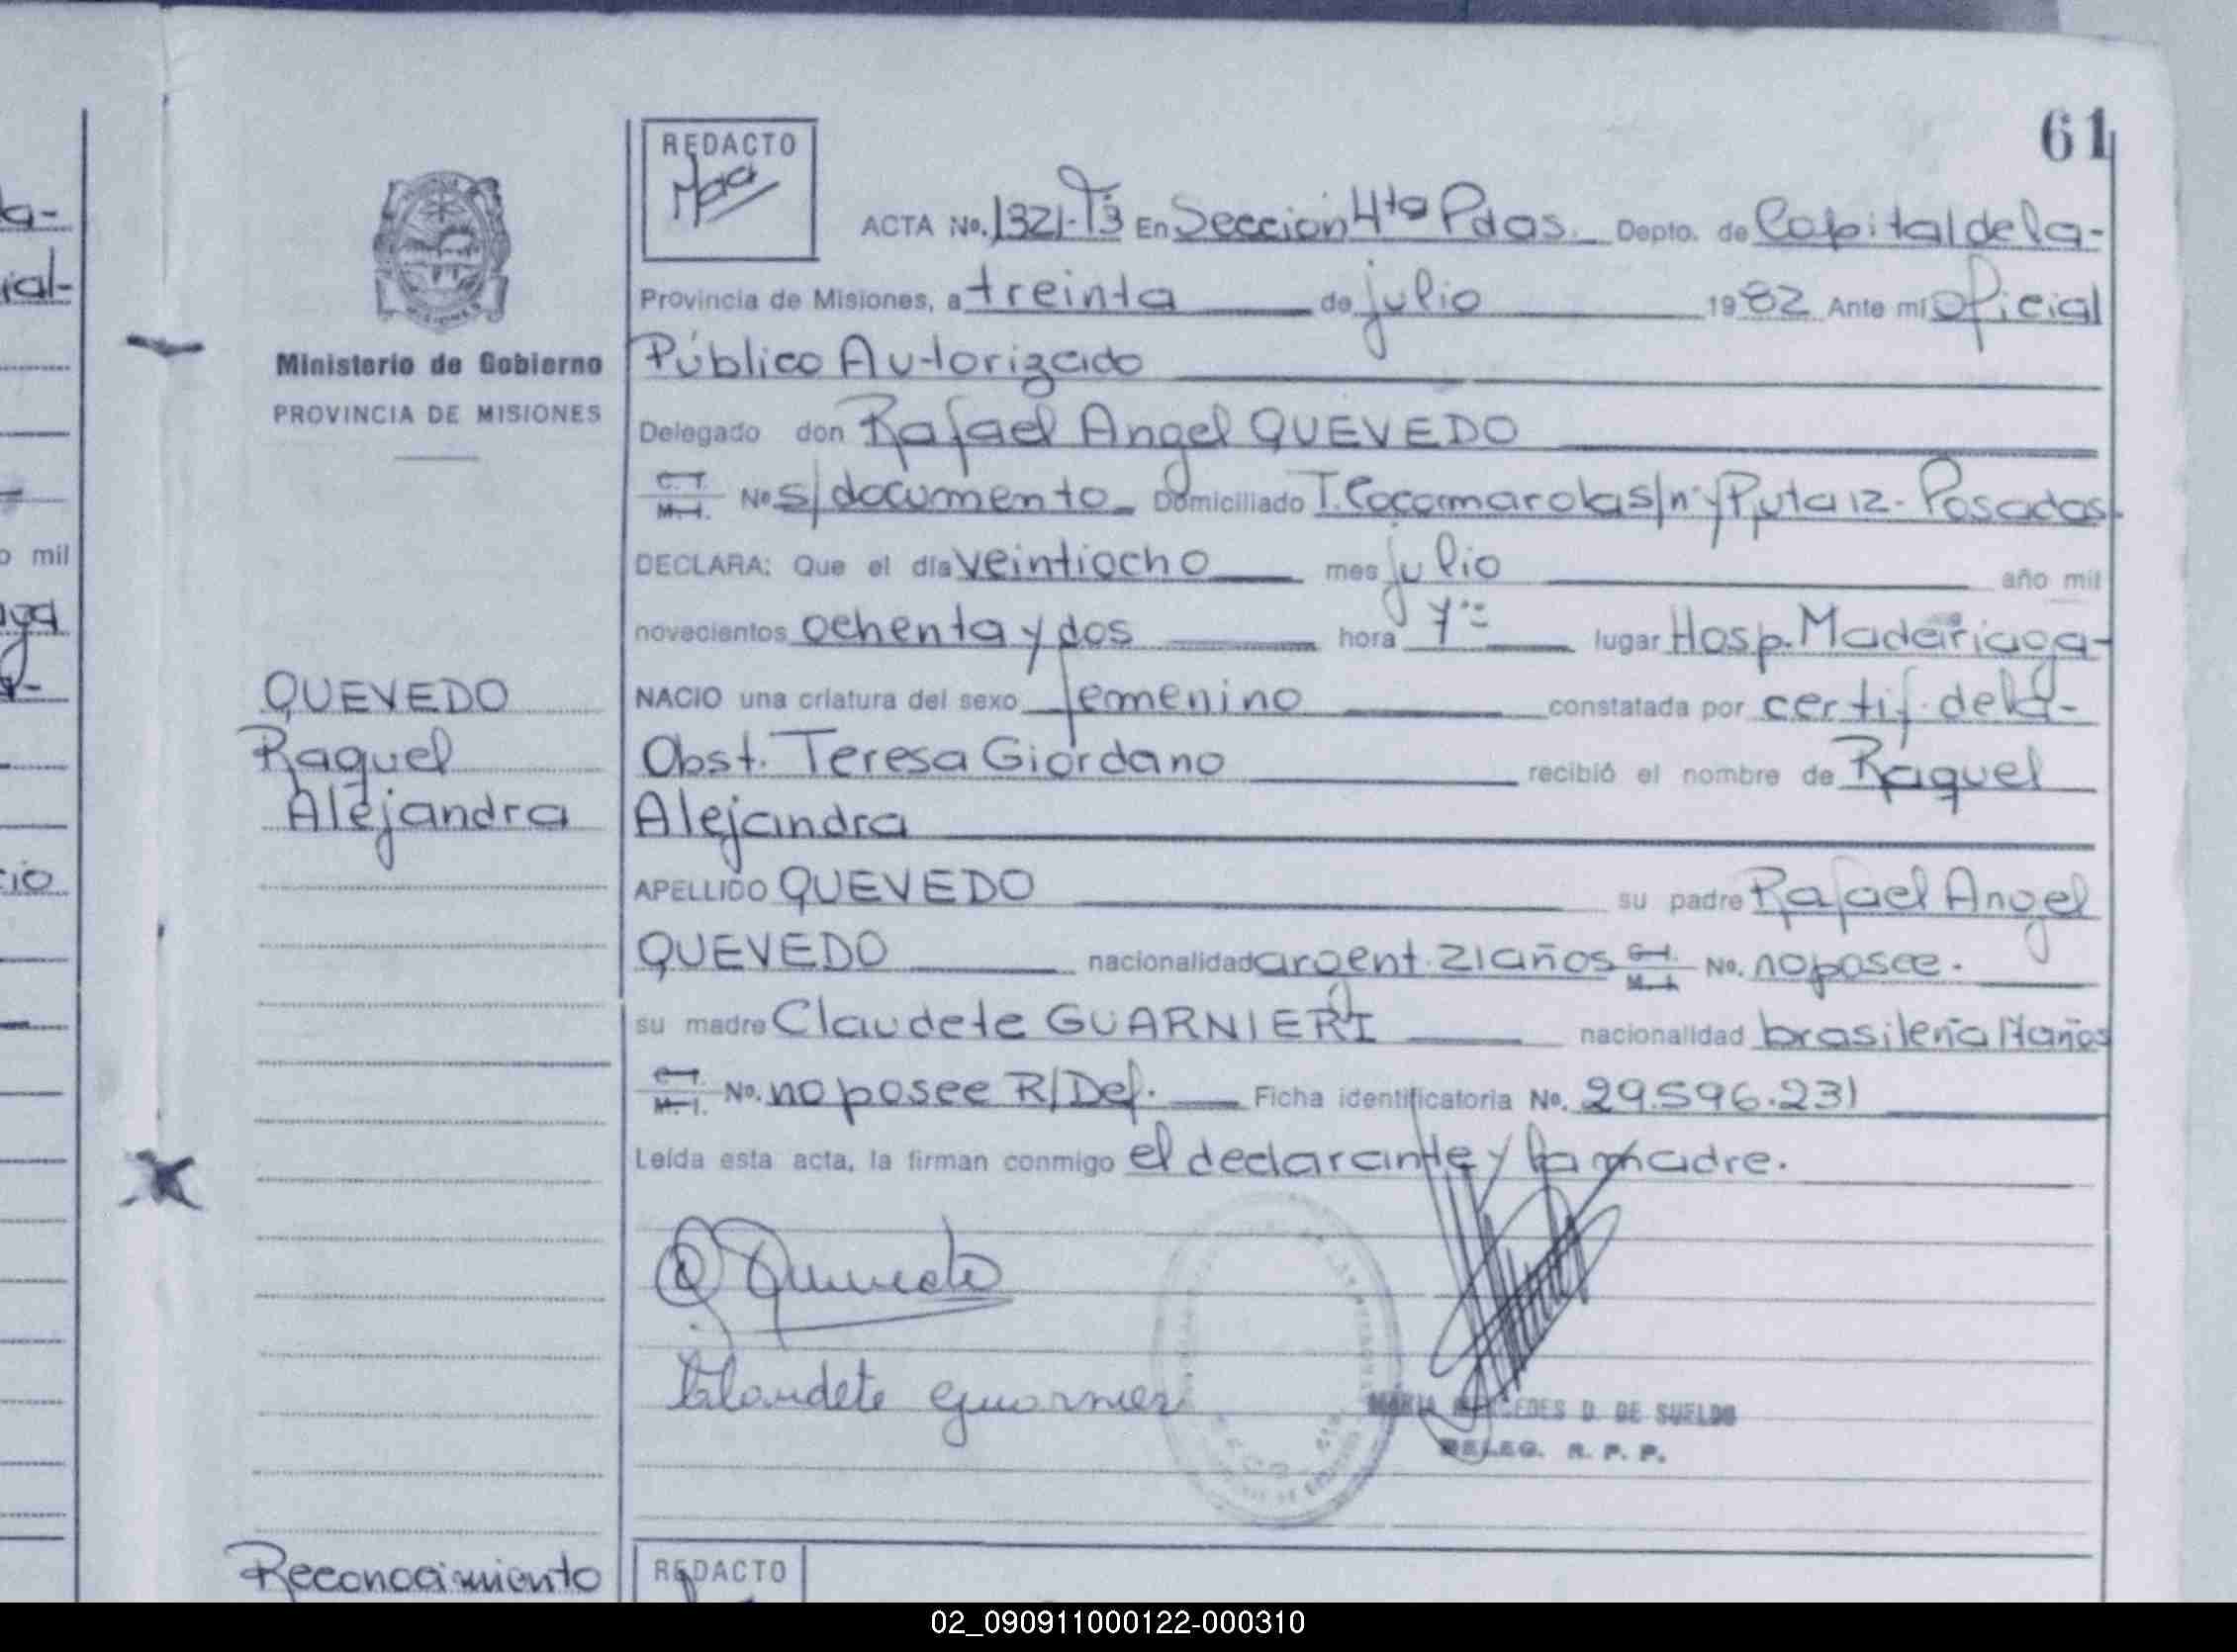 61
REDACTO
ACTA No. 1321-T3 En Sección 4ta Pdas. Depto. de Capital de la-
Provincia de Misiones, a treinta de julio 1982 Ante mí Oficial
Público Autorizado
Ministerio de Gobierno
PROVINCIA DE MISIONES
Delegado don Rafael Angel QUEVEDO
C. I. M. I. No s/documento_ Domiciliado T. Cocomarola s/n° y Ruta 12 - Posadas
DECLARA: Que el día veintiocho mes julio año mil
novecientos ochenta y dos hora lugar Hosp. Madariaga-
NACIO una criatura del sexo femenino constatada por certif. de la-
Obst. Teresa Giordano recibió el nombre de Raquel
Alejandra
QUEVEDO
Raquel
Alejandra
APELLIDO QUEVEDO su padre Rafael Angel
QUEVEDO nacionalidad argent. 21 años C. I. M. I. No. no posee.
su madre Claudete GUARNIERI nacionalidad brasileña años
C. I. M. I. No. no posee R/Def. Ficha identificatoria No. 29.596.231
Leída esta acta, la firman conmigo el declarante y la madre.
Quevedo
Claudete Guarnieri
MARIA MERCEDES D. DE SUELDO
DELEG. R. P. P.
Reconocimiento
REDACTO
02_090911000122-000310